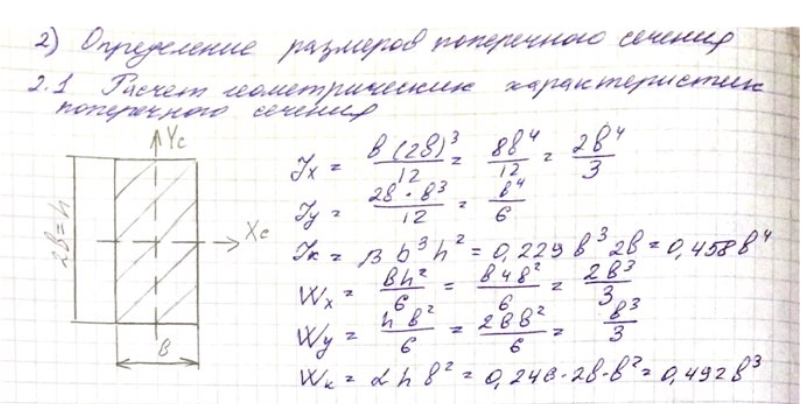 2) Определение размеров поперечного сечения
2.1 Расчет геометрических характеристик
поперечного сечения
Yc
Xc
2в=h
в
Jx = в(2в)³/12 = 8в⁴/12 = 2в⁴/3
Jy = 2в·в³/12 = в⁴/6
Jк = β b³h² = 0,229в³2в = 0,458в⁴
Wx = вh²/6 = в4в²/6 = 2в³/3
Wy = hв²/6 = 2вв²/6 = в³/3
Wк = αhв² = 0,246·2в·в² = 0,492в³